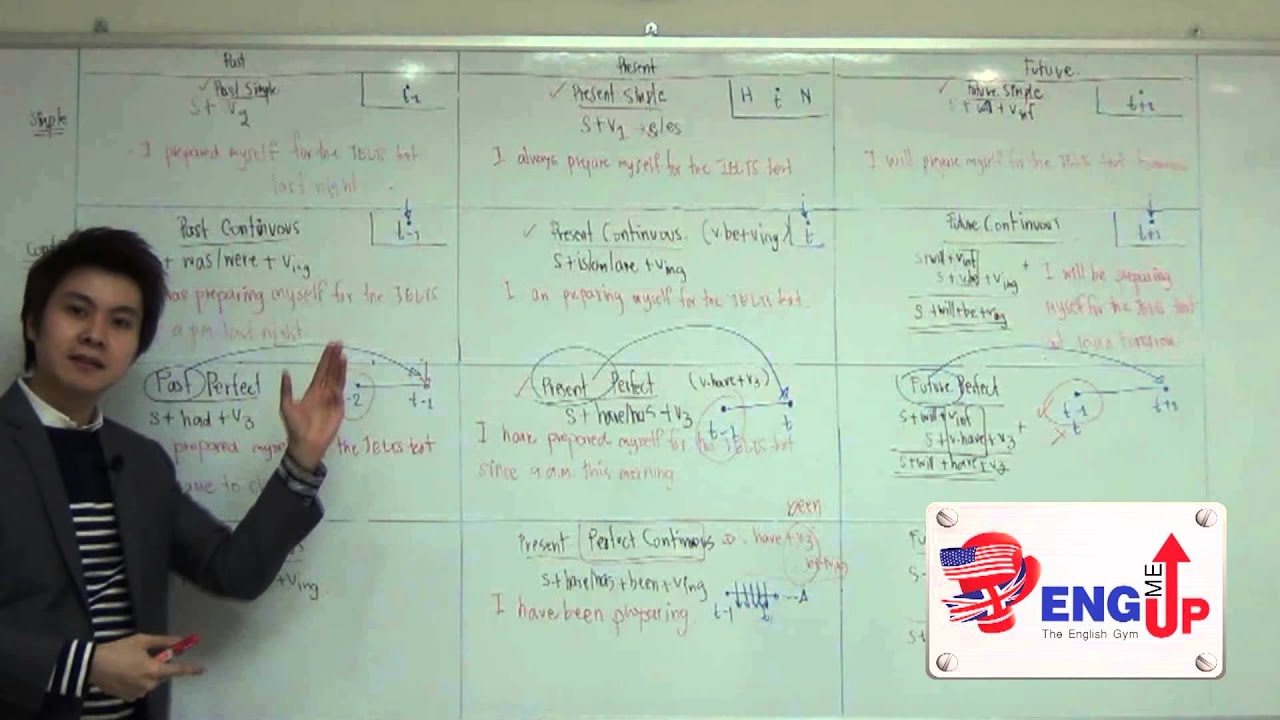 Past
Present
Future
Simple
Past Simple
S + V2
t-1
I prepared myself for the IELTS test
last night.
Present Simple
H t N
S+V1 +s/es
I always prepare myself for the IELTS test
Future Simple
S + will + Vinf
t+1
I will prepare myself for the IELTS test
Past Continuous
t-1
+ was/were + Ving
preparing myself for the IELTS
last night
Present Continuous. (v.be+ving)
t
S+is/am/are + Ving
I am preparing myself for the IELTS test.
Future Continuous
t+1
S+will+Vinf
S+vbe+Ving
S+will+be+Ving
+
I will be preparing
myself for the IELTS test
at
Past Perfect
-2
t-1
S + had + V3
prepared
the IELTS test
to
Present Perfect (v.have+v3)
S + have/has + V3
t-1
t
I have prepared myself for the IELTS test
since 9 a.m. this morning
Future Perfect
S+will+Vinf
S+v.have+V3
S+will+have+V3
+
t-1
t
t+1
+Ving
Present Perfect Continuous
have + V3
been
S+have/has+been+Ving
t-1
t
I have been preparing
Fu
S
ENG
ME
UP
The English Gym